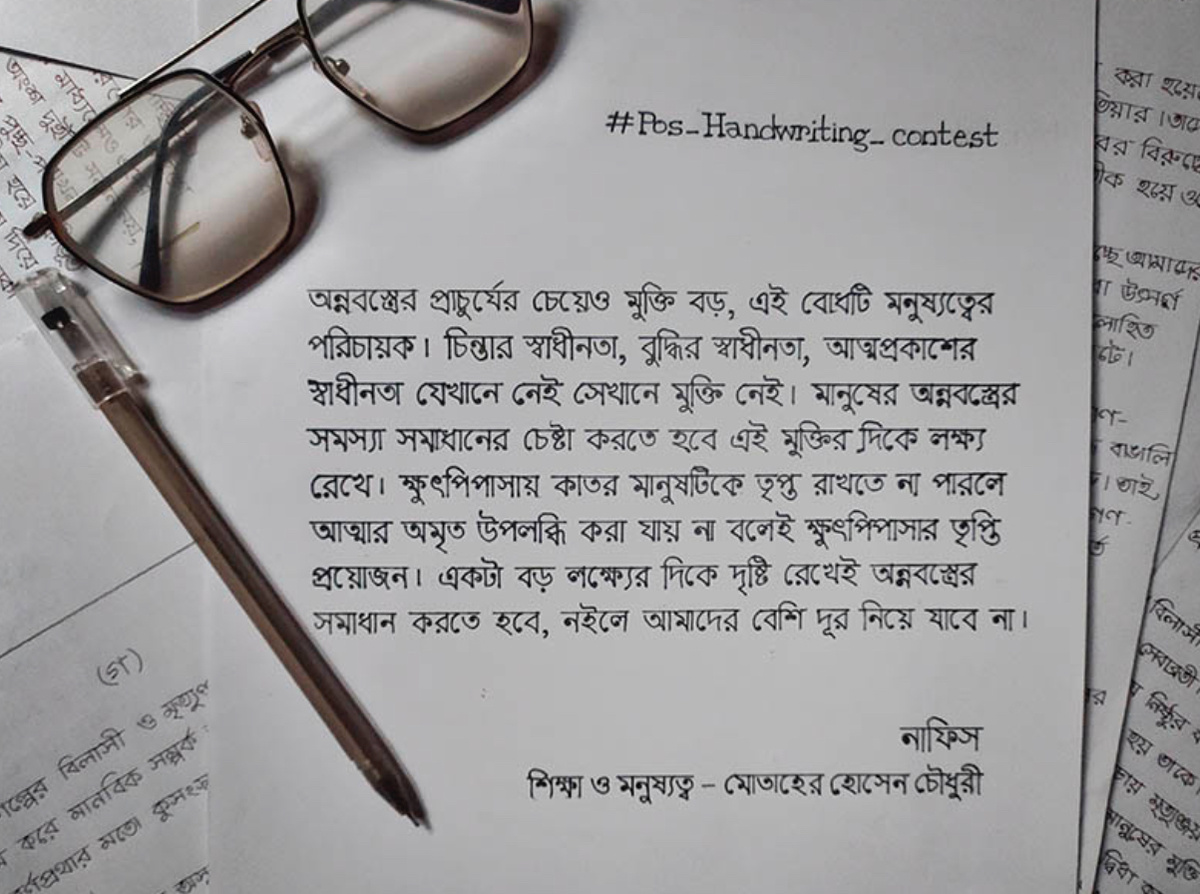 #Pos_Handwriting_contest
অন্নবস্ত্রের প্রাচুর্যের চেয়েও মুক্তি বড়, এই বোধটি মনুষ্যত্বের
পরিচায়ক। চিন্তার স্বাধীনতা, বুদ্ধির স্বাধীনতা, আত্মপ্রকাশের
স্বাধীনতা যেখানে নেই সেখানে মুক্তি নেই। মানুষের অন্নবস্ত্রের
সমস্যা সমাধানের চেষ্টা করতে হবে এই মুক্তির দিকে লক্ষ্য
রেখে। ক্ষুৎপিপাসায় কাতর মানুষটিকে তৃপ্ত রাখতে না পারলে
আত্মার অমৃত উপলব্ধি করা যায় না বলেই ক্ষুৎপিপাসার তৃপ্তি
প্রয়োজন। একটা বড় লক্ষ্যের দিকে দৃষ্টি রেখেই অন্নবস্ত্রের
সমাধান করতে হবে, নইলে আমাদের বেশি দূর নিয়ে যাবে না।
নাফিস
শিক্ষা ও মনুষ্যত্ব – মোতাহের হোসেন চৌধুরী
(গ)
বিলাসী ও
করে মানবিক সম্পর্ক
মতো
করা হয়ে
বিরুদ্ধে
হয়ে
আমাদের
উৎসর্গ
বাঙালি
তাই
বিলাসী
নিষ্ঠুর
হয় তাকে
মানুষের মুক্তি
দ্বিধা